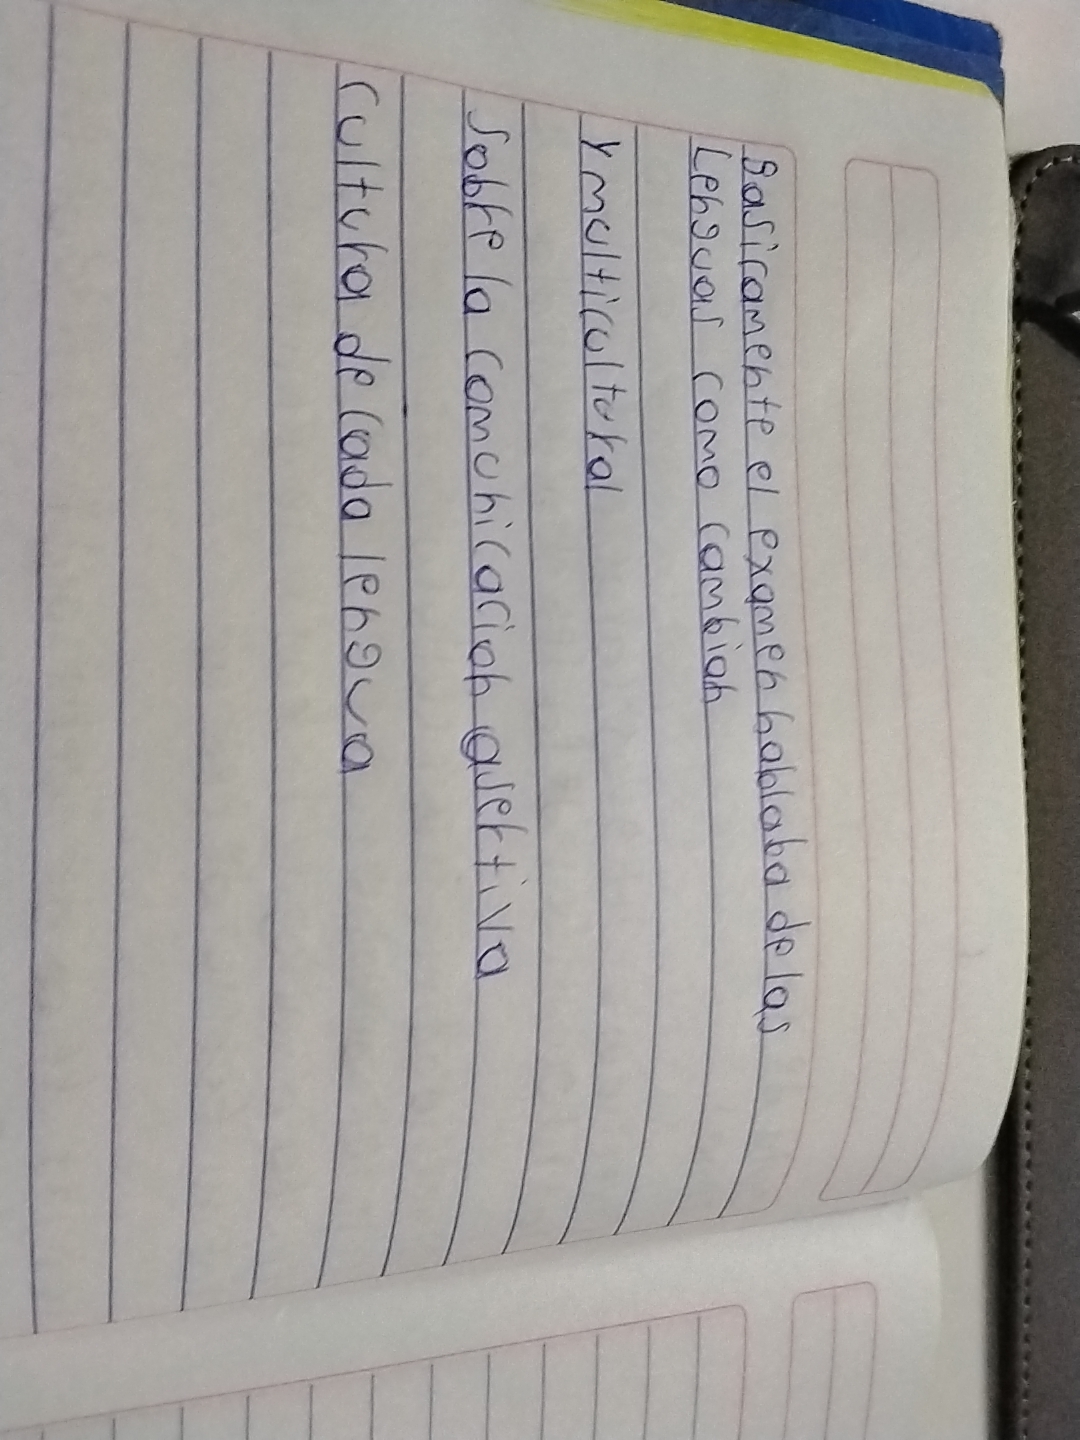 Basicamente el examen hablaba de las
Lenguas como cambian
y multicultural
Sobre la comunicacion asertiva
cultura de cada lengua